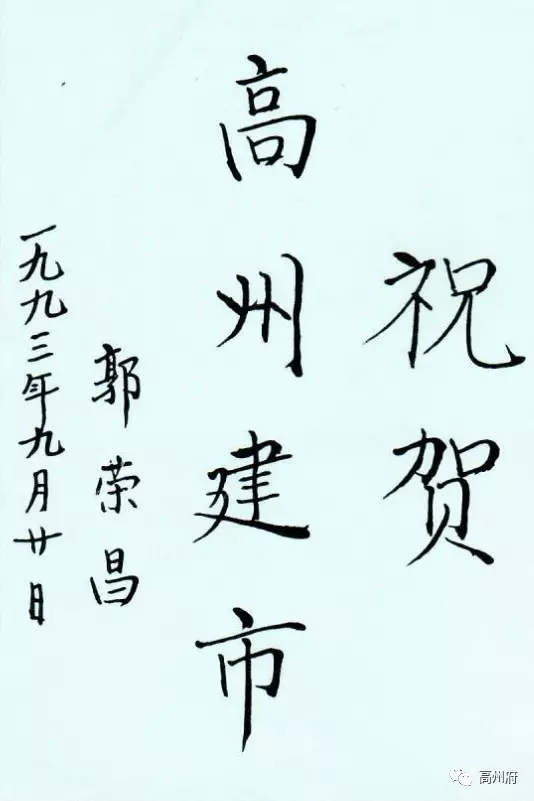 祝贺
高州建市
郭荣昌
一九九三年九月廿日
高州府